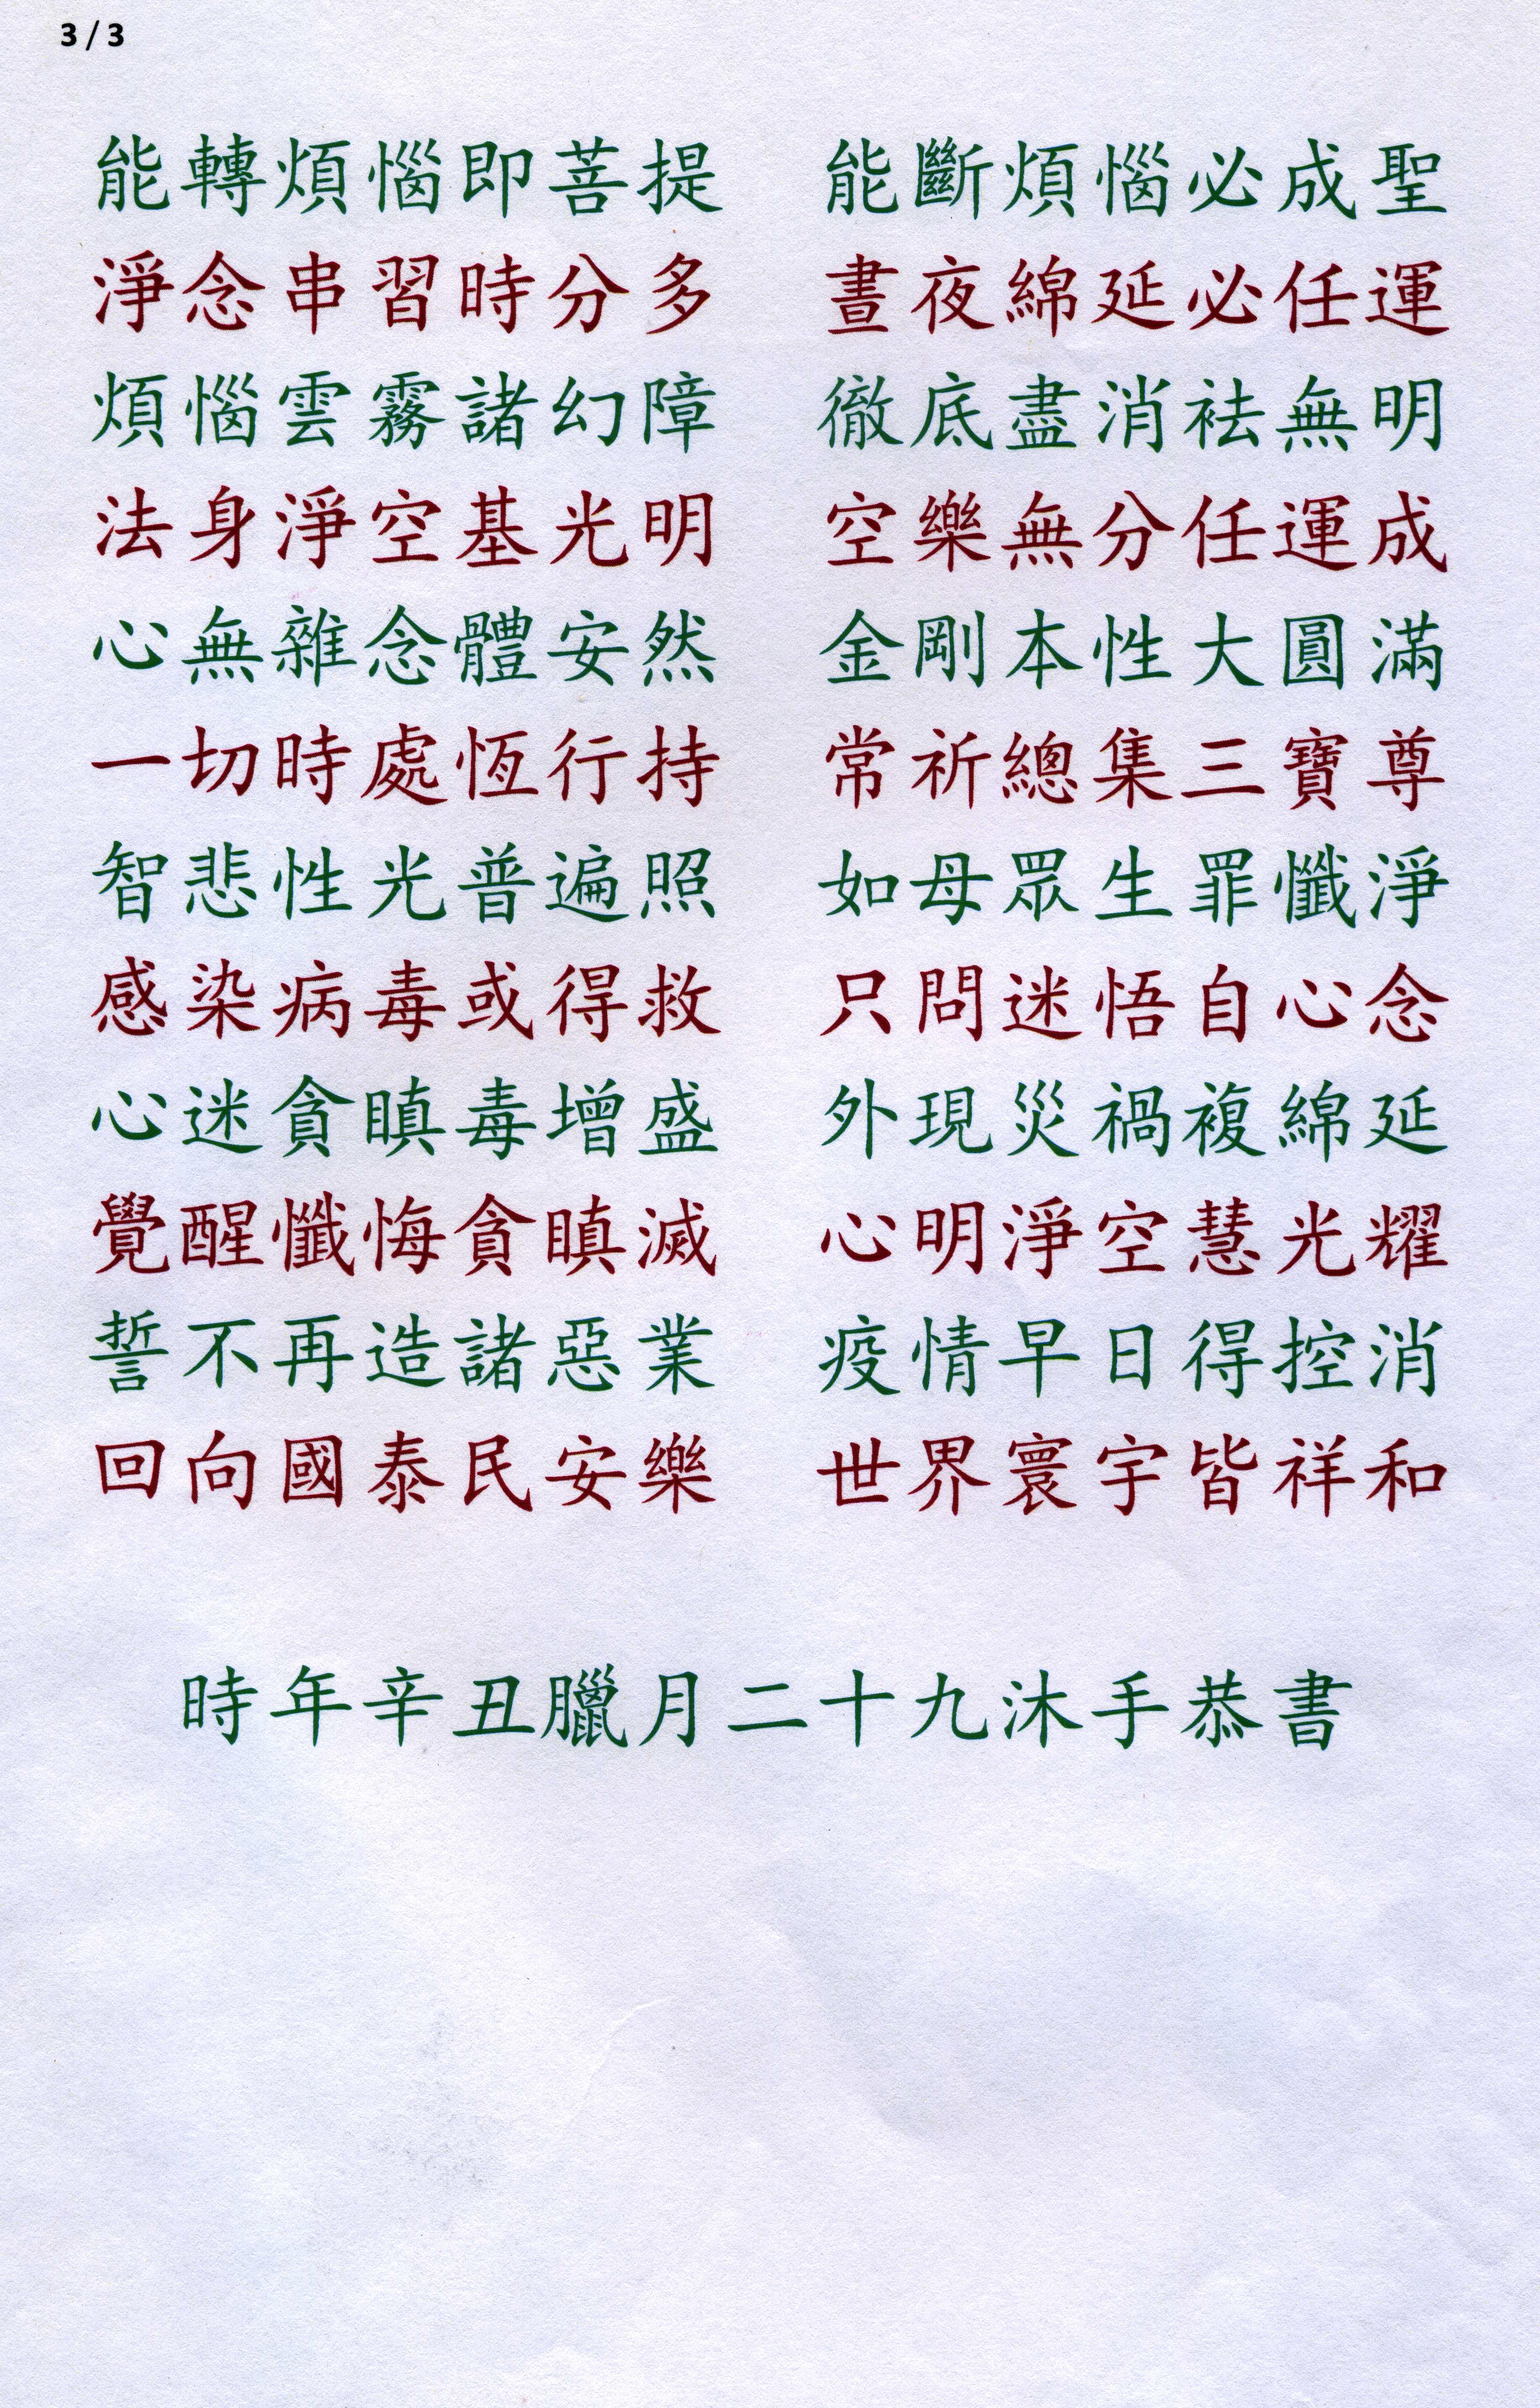 3 / 3
能轉煩惱即菩提　能斷煩惱必成聖
淨念串習時分多　晝夜綿延必任運
煩惱雲霧諸幻障　徹底盡消袪無明
法身淨空基光明　空樂無分任運成
心無雜念體安然　金剛本性大圓滿
一切時處恆行持　常祈總集三寶尊
智悲性光普遍照　如母眾生罪懺淨
感染病毒或得救　只問迷悟自心念
心迷貪瞋毒增盛　外現災禍複綿延
覺醒懺悔貪瞋滅　心明淨空慧光耀
誓不再造諸惡業　疫情早日得控消
回向國泰民安樂　世界寰宇皆祥和
時年辛丑臘月二十九沐手恭書